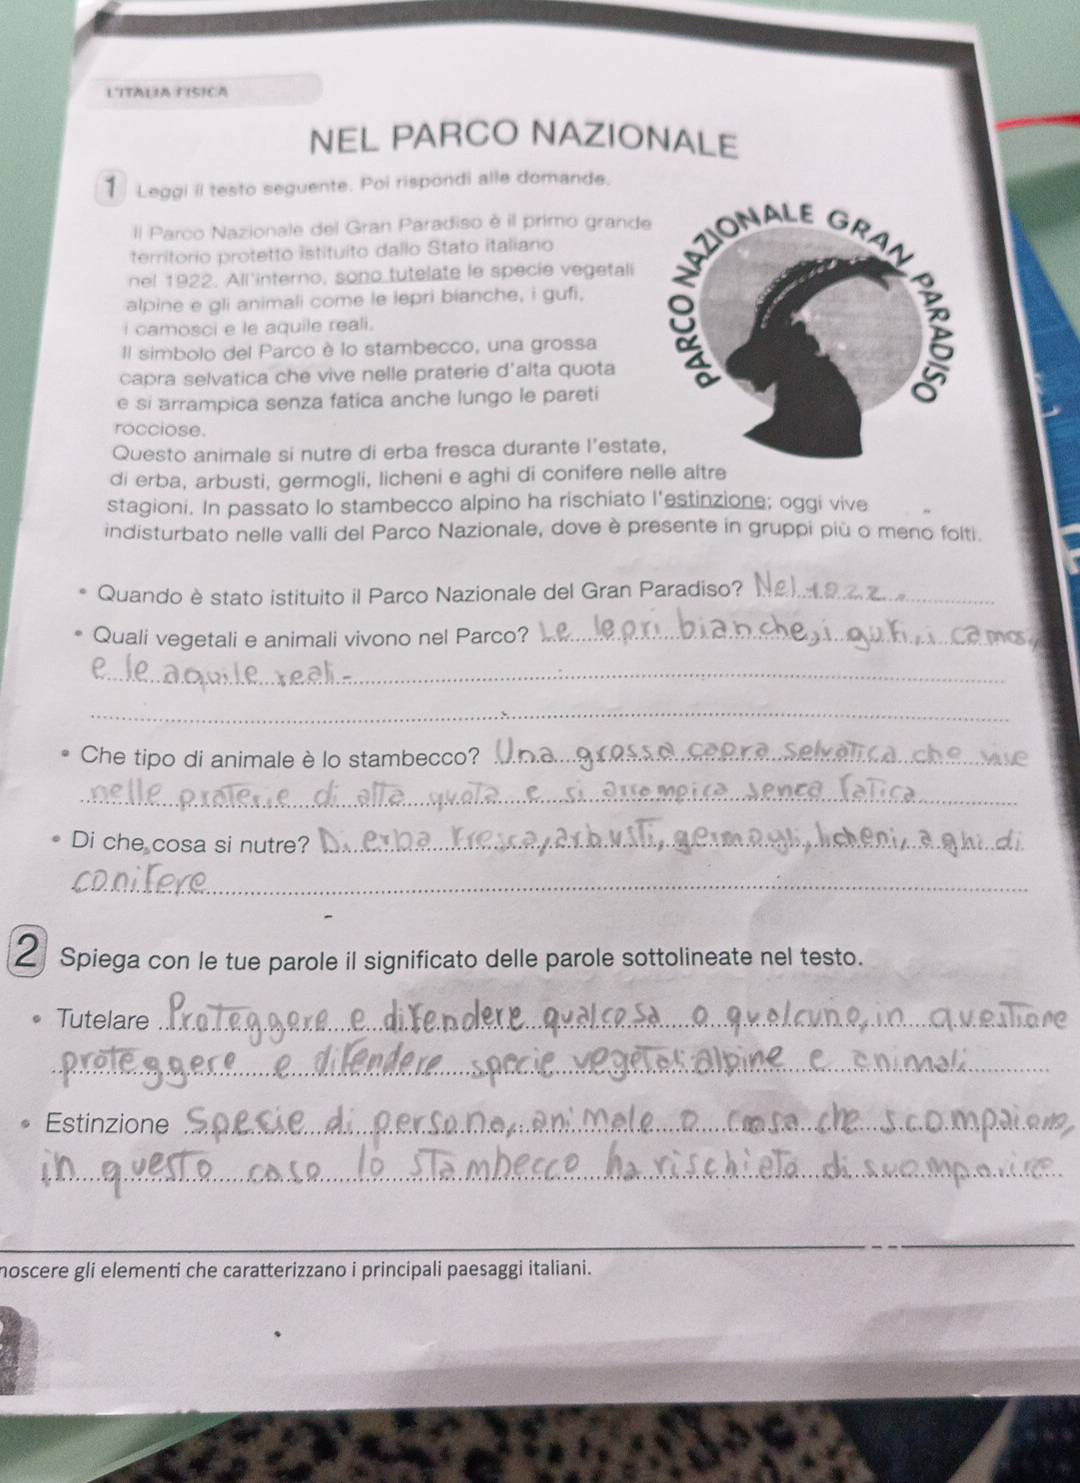 L'ITALIA FISICA
NEL PARCO NAZIONALE
1 Leggi il testo seguente. Poi rispondi alle domande.
PARCO NAZIONALE GRAN PARADISO
Il Parco Nazionale del Gran Paradiso è il primo grande
territorio protetto istituito dallo Stato italiano
nel 1922. All'interno, sono tutelate le specie vegetali
alpine e gli animali come le lepri bianche, i gufi,
i camosci e le aquile reali.
Il simbolo del Parco è lo stambecco, una grossa
capra selvatica che vive nelle praterie d'alta quota
e si arrampica senza fatica anche lungo le pareti
rocciose.
Questo animale si nutre di erba fresca durante l'estate,
di erba, arbusti, germogli, licheni e aghi di conifere nelle altre
stagioni. In passato lo stambecco alpino ha rischiato l'estinzione; oggi vive
indisturbato nelle valli del Parco Nazionale, dove è presente in gruppi più o meno folti.
• Quando è stato istituito il Parco Nazionale del Gran Paradiso? Nel 1922.
• Quali vegetali e animali vivono nel Parco? Le lepri bianche, i gufi, i camos
e le aquile reali.
• Che tipo di animale è lo stambecco? Una grossa capra selvatica che vive
nelle praterie di alta quota e si arrampica senca fatica.
• Di che cosa si nutre? Di erba fresca, arbusti, germogli, licheni, aghi di
conifere
2 Spiega con le tue parole il significato delle parole sottolineate nel testo.
• Tutelare Proteggere e difendere qualcosa o qualcuno, in questione
proteggere e difendere specie vegetali alpine e animali
• Estinzione Specie di persona, animale o cosa che scompaiono,
in questo caso lo stambecco ha rischiato di
noscere gli elementi che caratterizzano i principali paesaggi italiani.